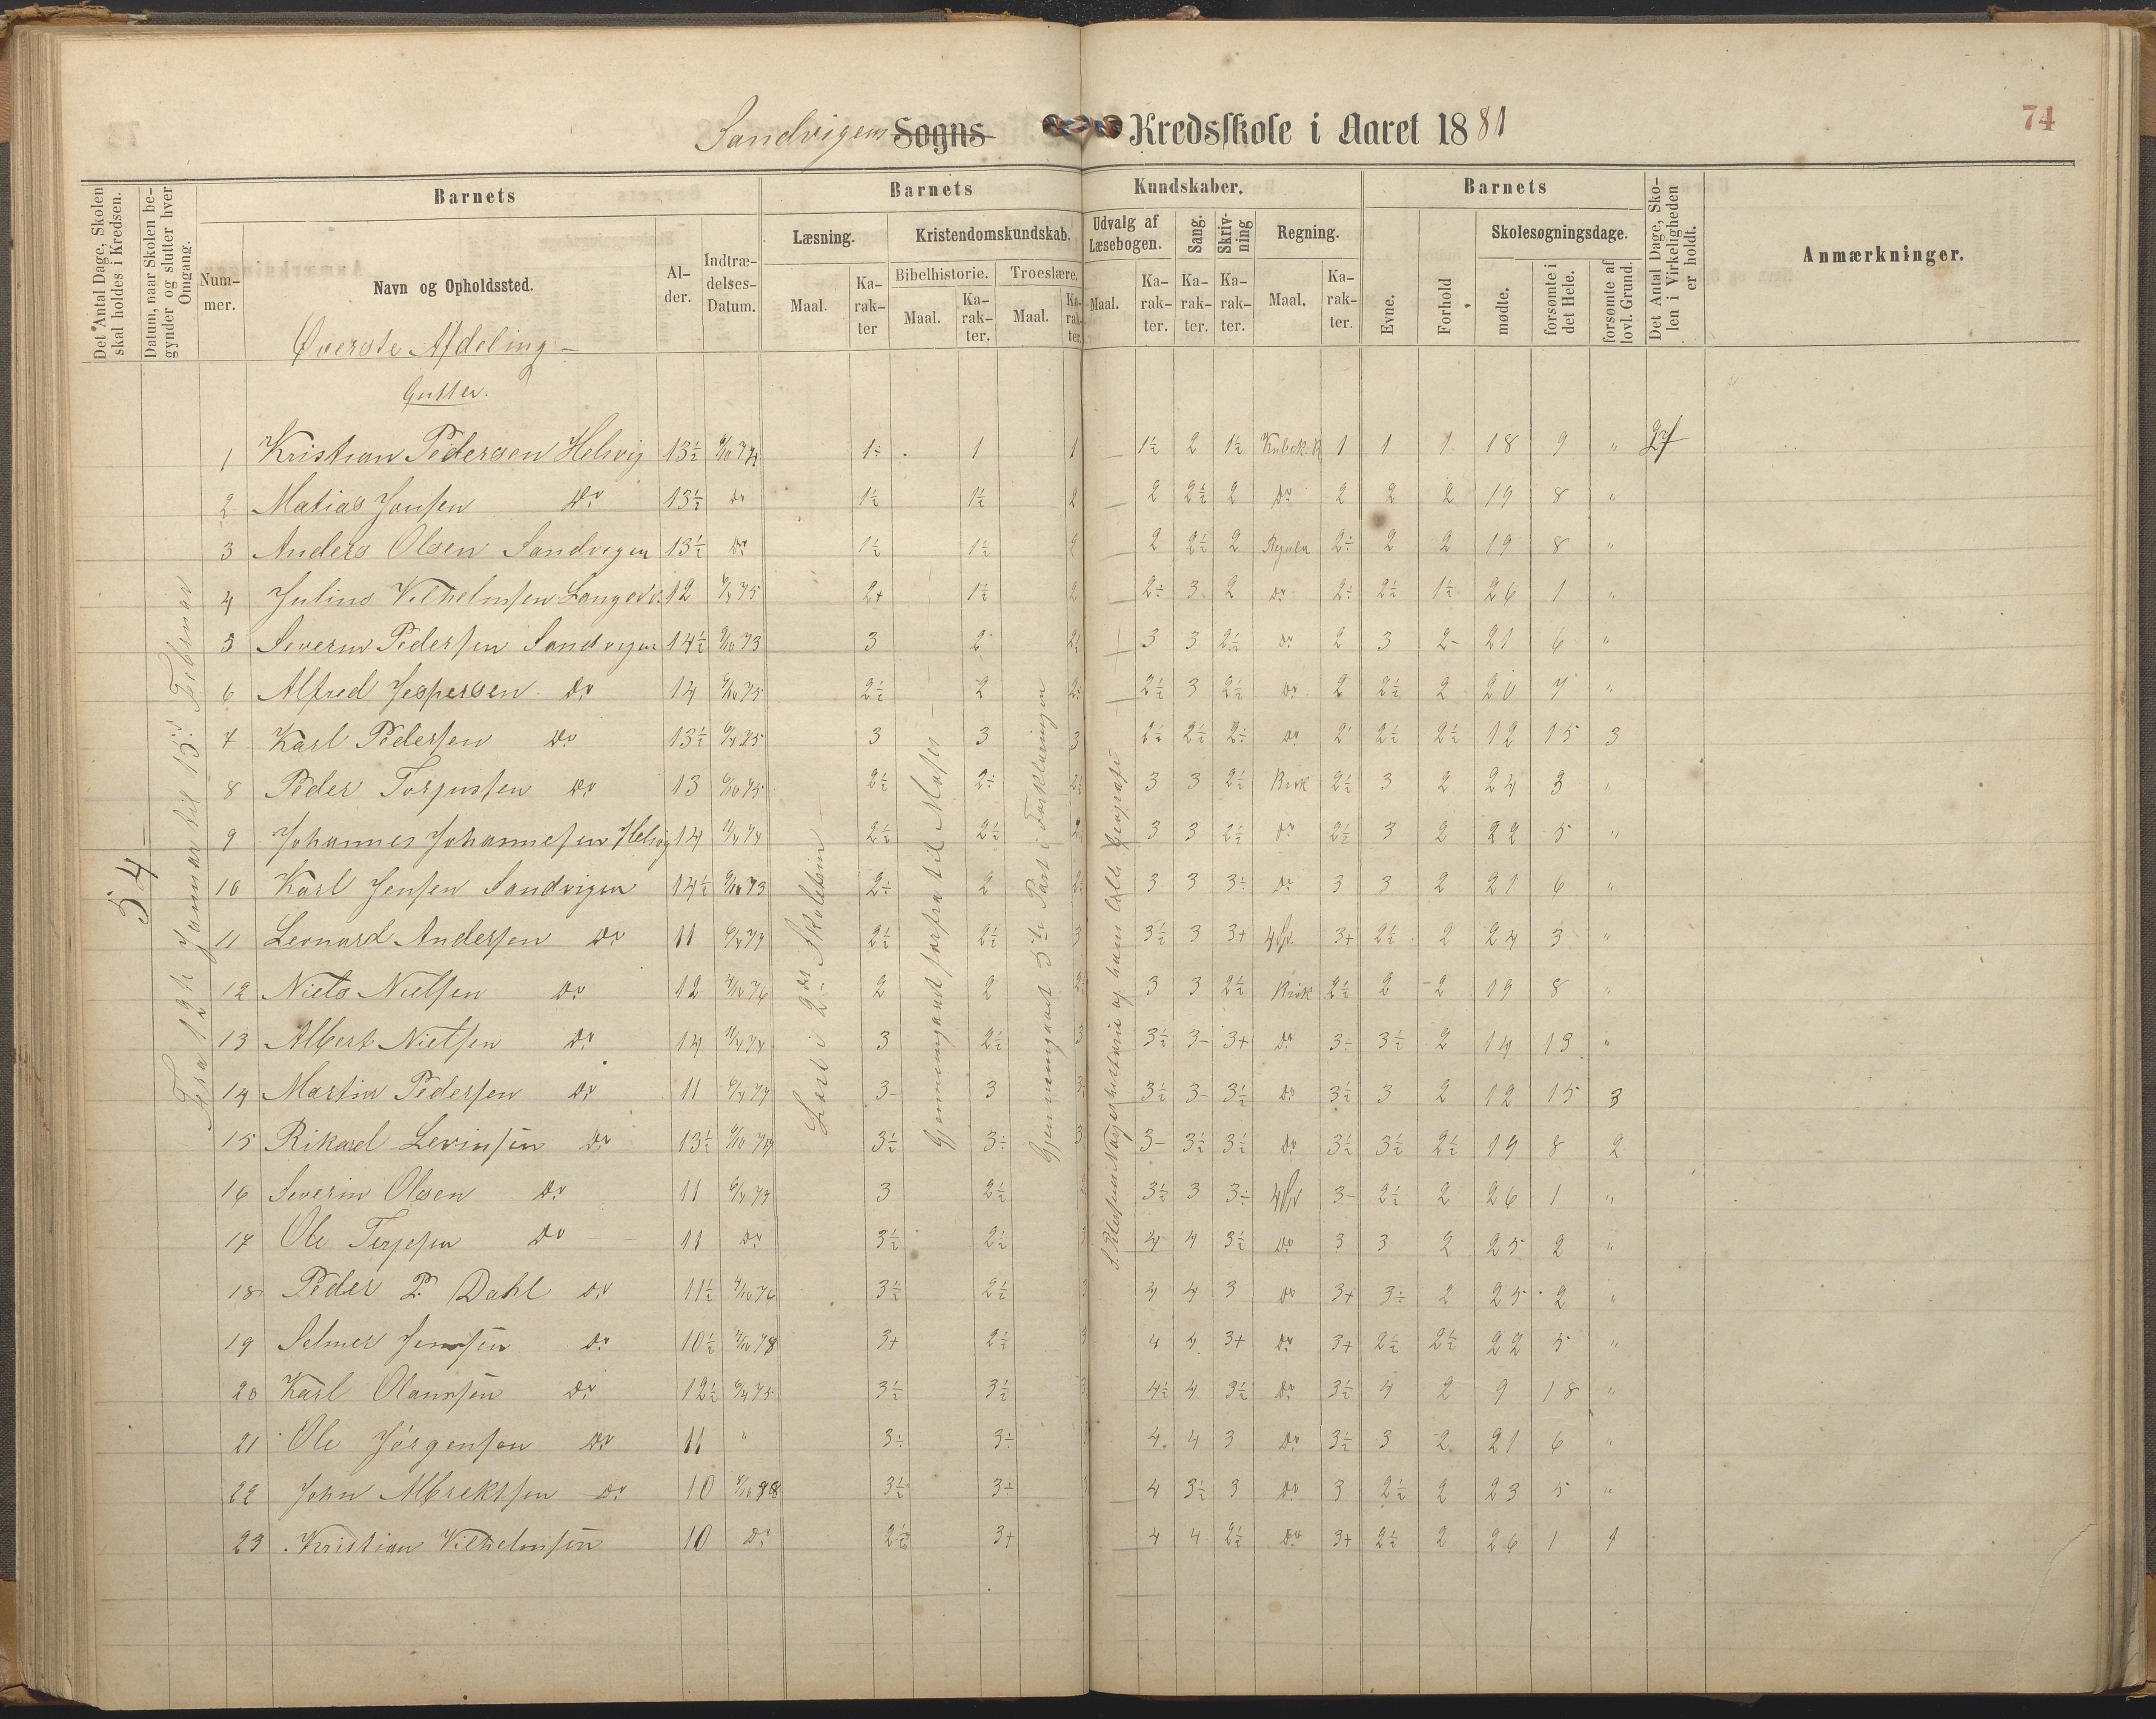 74
Sandvigens Sogns Kredsskole i Aaret 1881
Det Antal Dage, Skolen skal holdes i Kredsen.
Datum, naar Skolen begynder og slutter hver Omgang.
Barnets
Nummer.
Navn og Opholdssted.
Alder.
Indtrædelses-Datum.
Barnets Kundskaber.
Læsning.
Maal.
Karakter
Kristendomskundskab.
Bibelhistorie.
Maal.
Karakter.
Troeslære.
Maal.
Karakter
Udvalg af Læsebogen.
Maal.
Karakter.
Sang.
Karakter.
Skrivning
Karakter.
Regning.
Maal.
Karakter.
Barnets
Evne.
Forhold
Skolesøgningsdage.
mødte.
forsømte i det Hele.
forsømte af lovl. Grund.
Det Antal Dage, Skolen i Virkeligheden er holdt.
Anmærkninger.
Øverste Afdeling
Gutter.
54
Fra 12te Januar til 15de Februar
Læst i 2den Skoletrin
Gjennemgaaet forfra til Moses
Gjennemgaaet 5te Part i Forklaringen
1 Kristian Pedersen Helsvig 13½ 1÷ 1 1 1½ 2 1½ 1 1 1 18 9 " 27
2 Matias Jonsen do 13½ do 1½ 1½ 2 2 2½ 2 do 2 2 2 19 8 "
3 Anders Olsen Sandvigen 13½ do 1½ 1½ 2 2 2½ 2 2÷ 2 2 19 8 "
4 Julius Vilhelmsen 12 2+ 1½ 2 2÷ 3 2 do 2÷ 2½ 1½ 26 1 "
5 Severin Pedersen Sandvigen 14½ 3 2 2½ 3 3 2½ do 2 3 2- 21 6 "
6 Alfred Jespersen do 14 2½ 2 2÷ 2½ 3 2½ do 2 2½ 2 20 7 "
7 Karl Pedersen do 13½ 3 3 3 2½ 2½ 2÷ do 2 2½ 2½ 12 15 3
8 Peder Torjussen do 13 2½ 2÷ 2½ 3 3 2½ 2½ 3 2 24 3 "
9 Johannes Johannesen Helsvig 14 2½ 2½ 3 3 2½ do 2½ 3 2 22 5 "
10 Karl Jensen Sandvigen 14½ 2÷ 2 3 3 3÷ do 3 3 2 21 6 "
11 Leonard Andersen do 11 2½ 2½ 3 3½ 3 3+ 3+ 2½ 2 24 3 "
12 Niels Nielsen do 12 2 2 3 3 2½ 2½ 2 2 19 8 "
13 Albert Nielsen do 14 3 2½ 3 3½ 3- 3+ do 3÷ 3½ 2 14 13 "
14 Martin Pedersen do 11 3- 3 3½ 3- 3½ do 3½ 3 2 12 15 3
15 Rikard Levinsen do 13½ 3½ 3÷ 3 3- 3½ 3½ do 3½ 3½ 2½ 19 8 2
16 Severin Olsen do 11 3 2½ 3½ 3 3÷ 3- 2½ 2 26 1 "
17 Ole Terjesen do 11 do 3½ 2½ 4 4 3½ do 3 3 2 25 2 "
18 Peder P. Dahl do 11½ 3½ 2½ 4 4 3 do 3+ 3÷ 2 25 2 "
19 Selmer Jensen do 10½ 3+ 2½ 4 4 3+ do 3+ 2½ 2½ 22 5 "
20 Karl Olaussen do 12½ 3½ 3½ 4½ 4 3½ do 3½ 4 2 9 18 "
21 Ole Jörgensen do 11 " 3÷ 3÷ 4 4 3 do 3½ 3 2 21 6 "
22 John Albrektsen do 10 3½ 3÷ 4 3½ 3 do 3 2½ 2 23 5 "
23 Kristian Vilhelmsen 10 do 2½ 3+ 4 4 2½ do 3+ 2½ 2 26 1 1